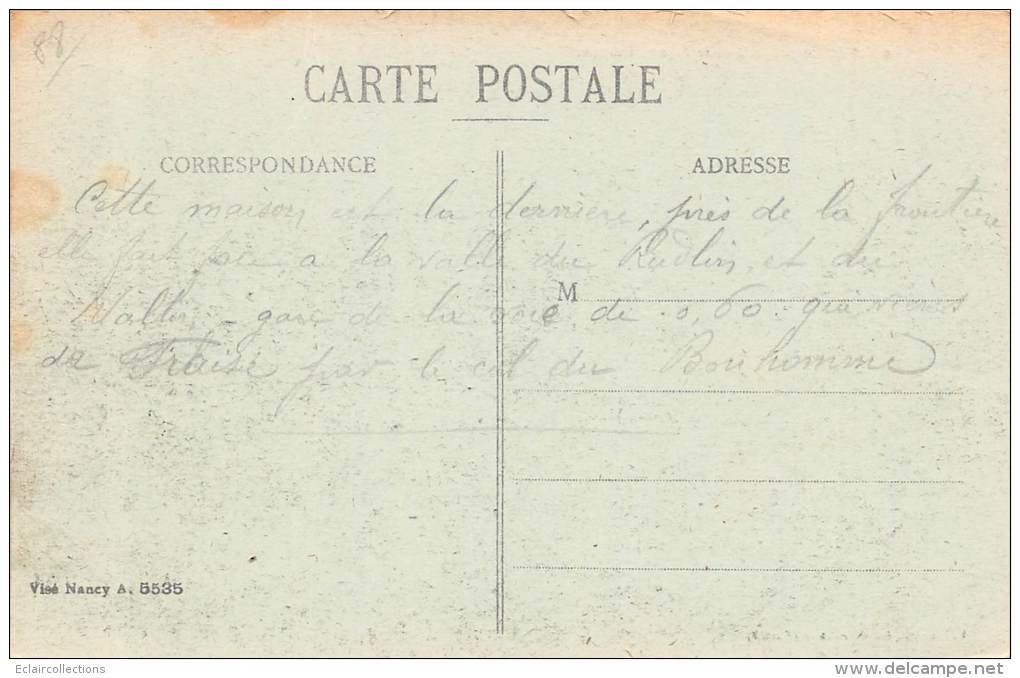 88/
CARTE POSTALE
CORRESPONDANCE
ADRESSE
Cette maison est la dernière, près de la frontière
elle fait face a la vallé du Rudlin, et du
M
Valtin, - gare de la voie de 0,60 qui vient
de Fraize par le col du Bonhomme
Visé Nancy A. 5535
Eclaircollections
delcampe.net